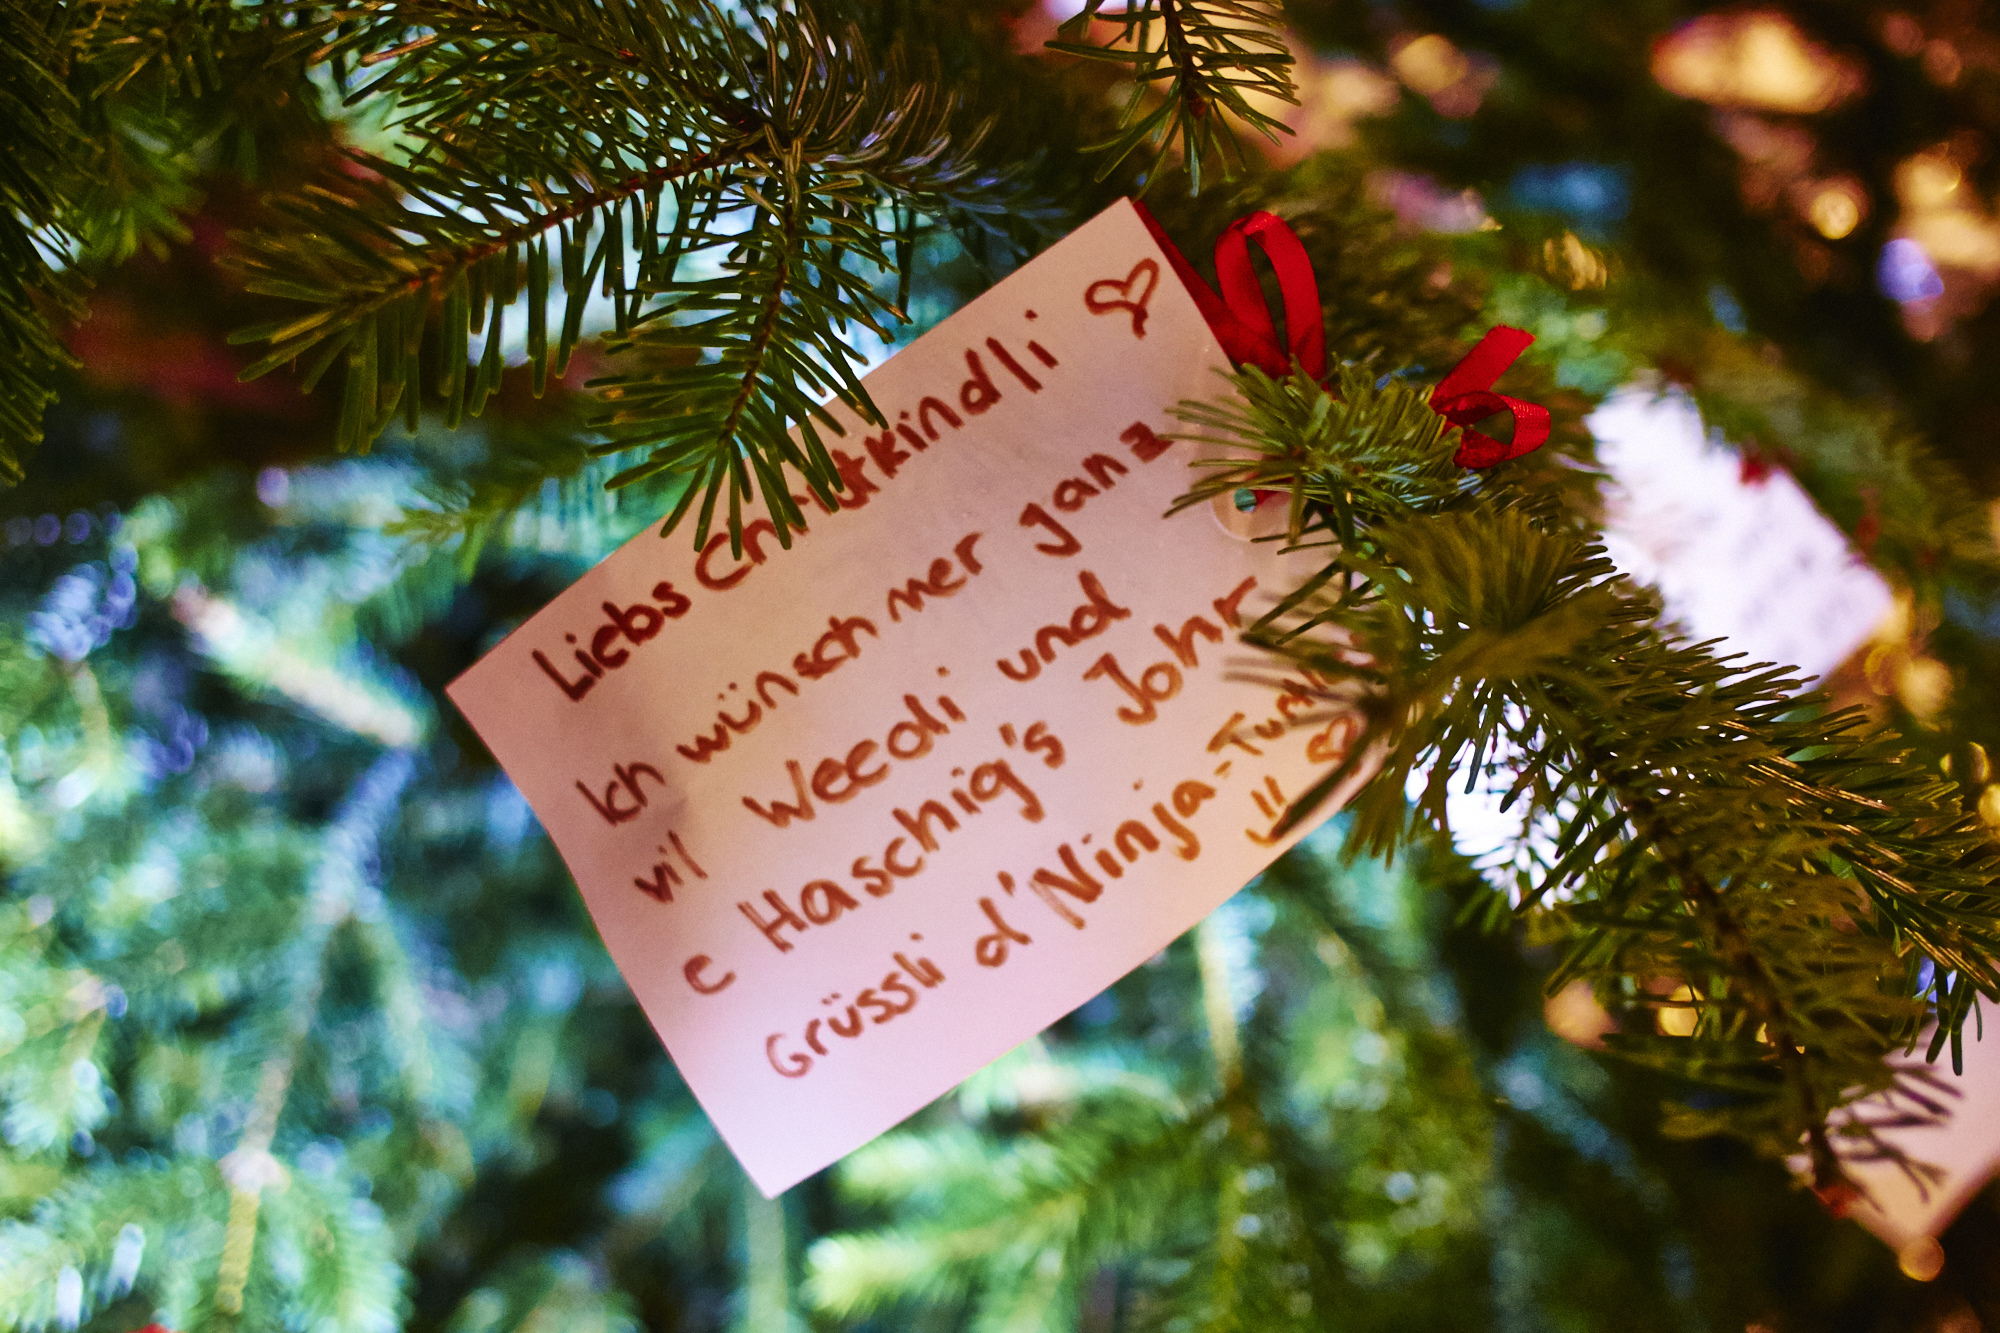 Liebs Christkindli ♡
Ich wünsch mer ganz
vil Weedli und
c Haschig's Johr
Grüssli d'Ninja-Turtl